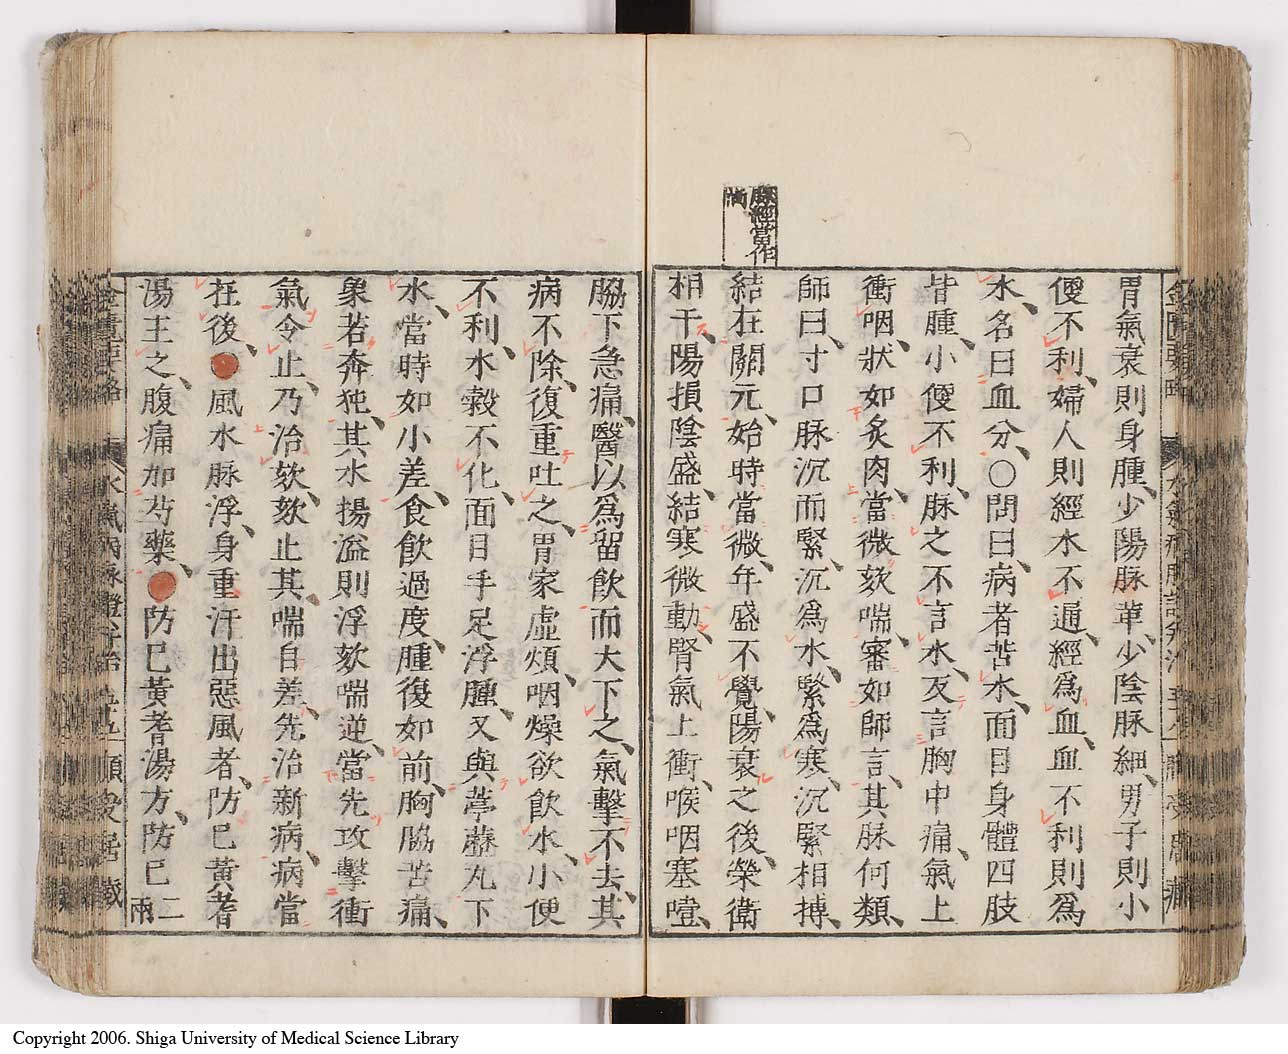 脉經當作
滿
胃氣衰則身腫少陽脉革少陰脉細男子則小
便不利婦人則經水不通經爲血血不利則爲
水名曰血分○問曰病者苦水面目身體四肢
皆腫小便不利脉之不言水反言胸中痛氣上
衝咽狀如炙肉當微欬喘審如師言其脉何類
師曰寸口脉沉而緊沉爲水緊爲寒沉緊相搏
結在關元始時當微年盛不覺陽衰之後榮衛
相干陽損陰盛結寒微動腎氣上衝喉咽塞噎
脇下急痛醫以爲留飲而大下之氣擊不去其
病不除復重吐之胃家虛煩咽燥欲飲水小便
不利水穀不化面目手足浮腫又與葶藶丸下
水當時如小差食飲過度腫復如前胸脇苦痛
象若奔㹠其水揚溢則浮欬喘逆當先攻擊衝
氣令止乃治欬欬止其喘自差先治新病病當
在後●風水脉浮身重汗出惡風者防已黃耆
湯主之腹痛加芍藥●防已黃耆湯方防已二
兩
金匱要略 水氣病脉證并治 五十九 順受居 藏